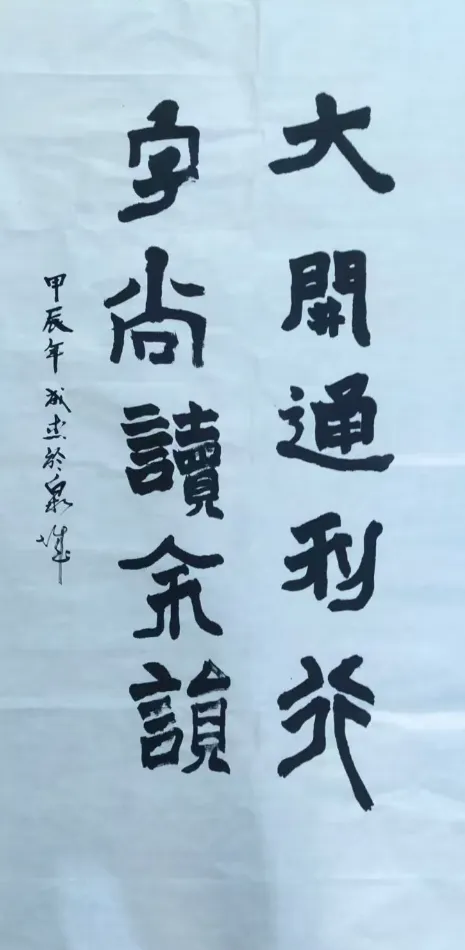 大開通利行
字尚讀余韻
甲辰年成杰於泉城